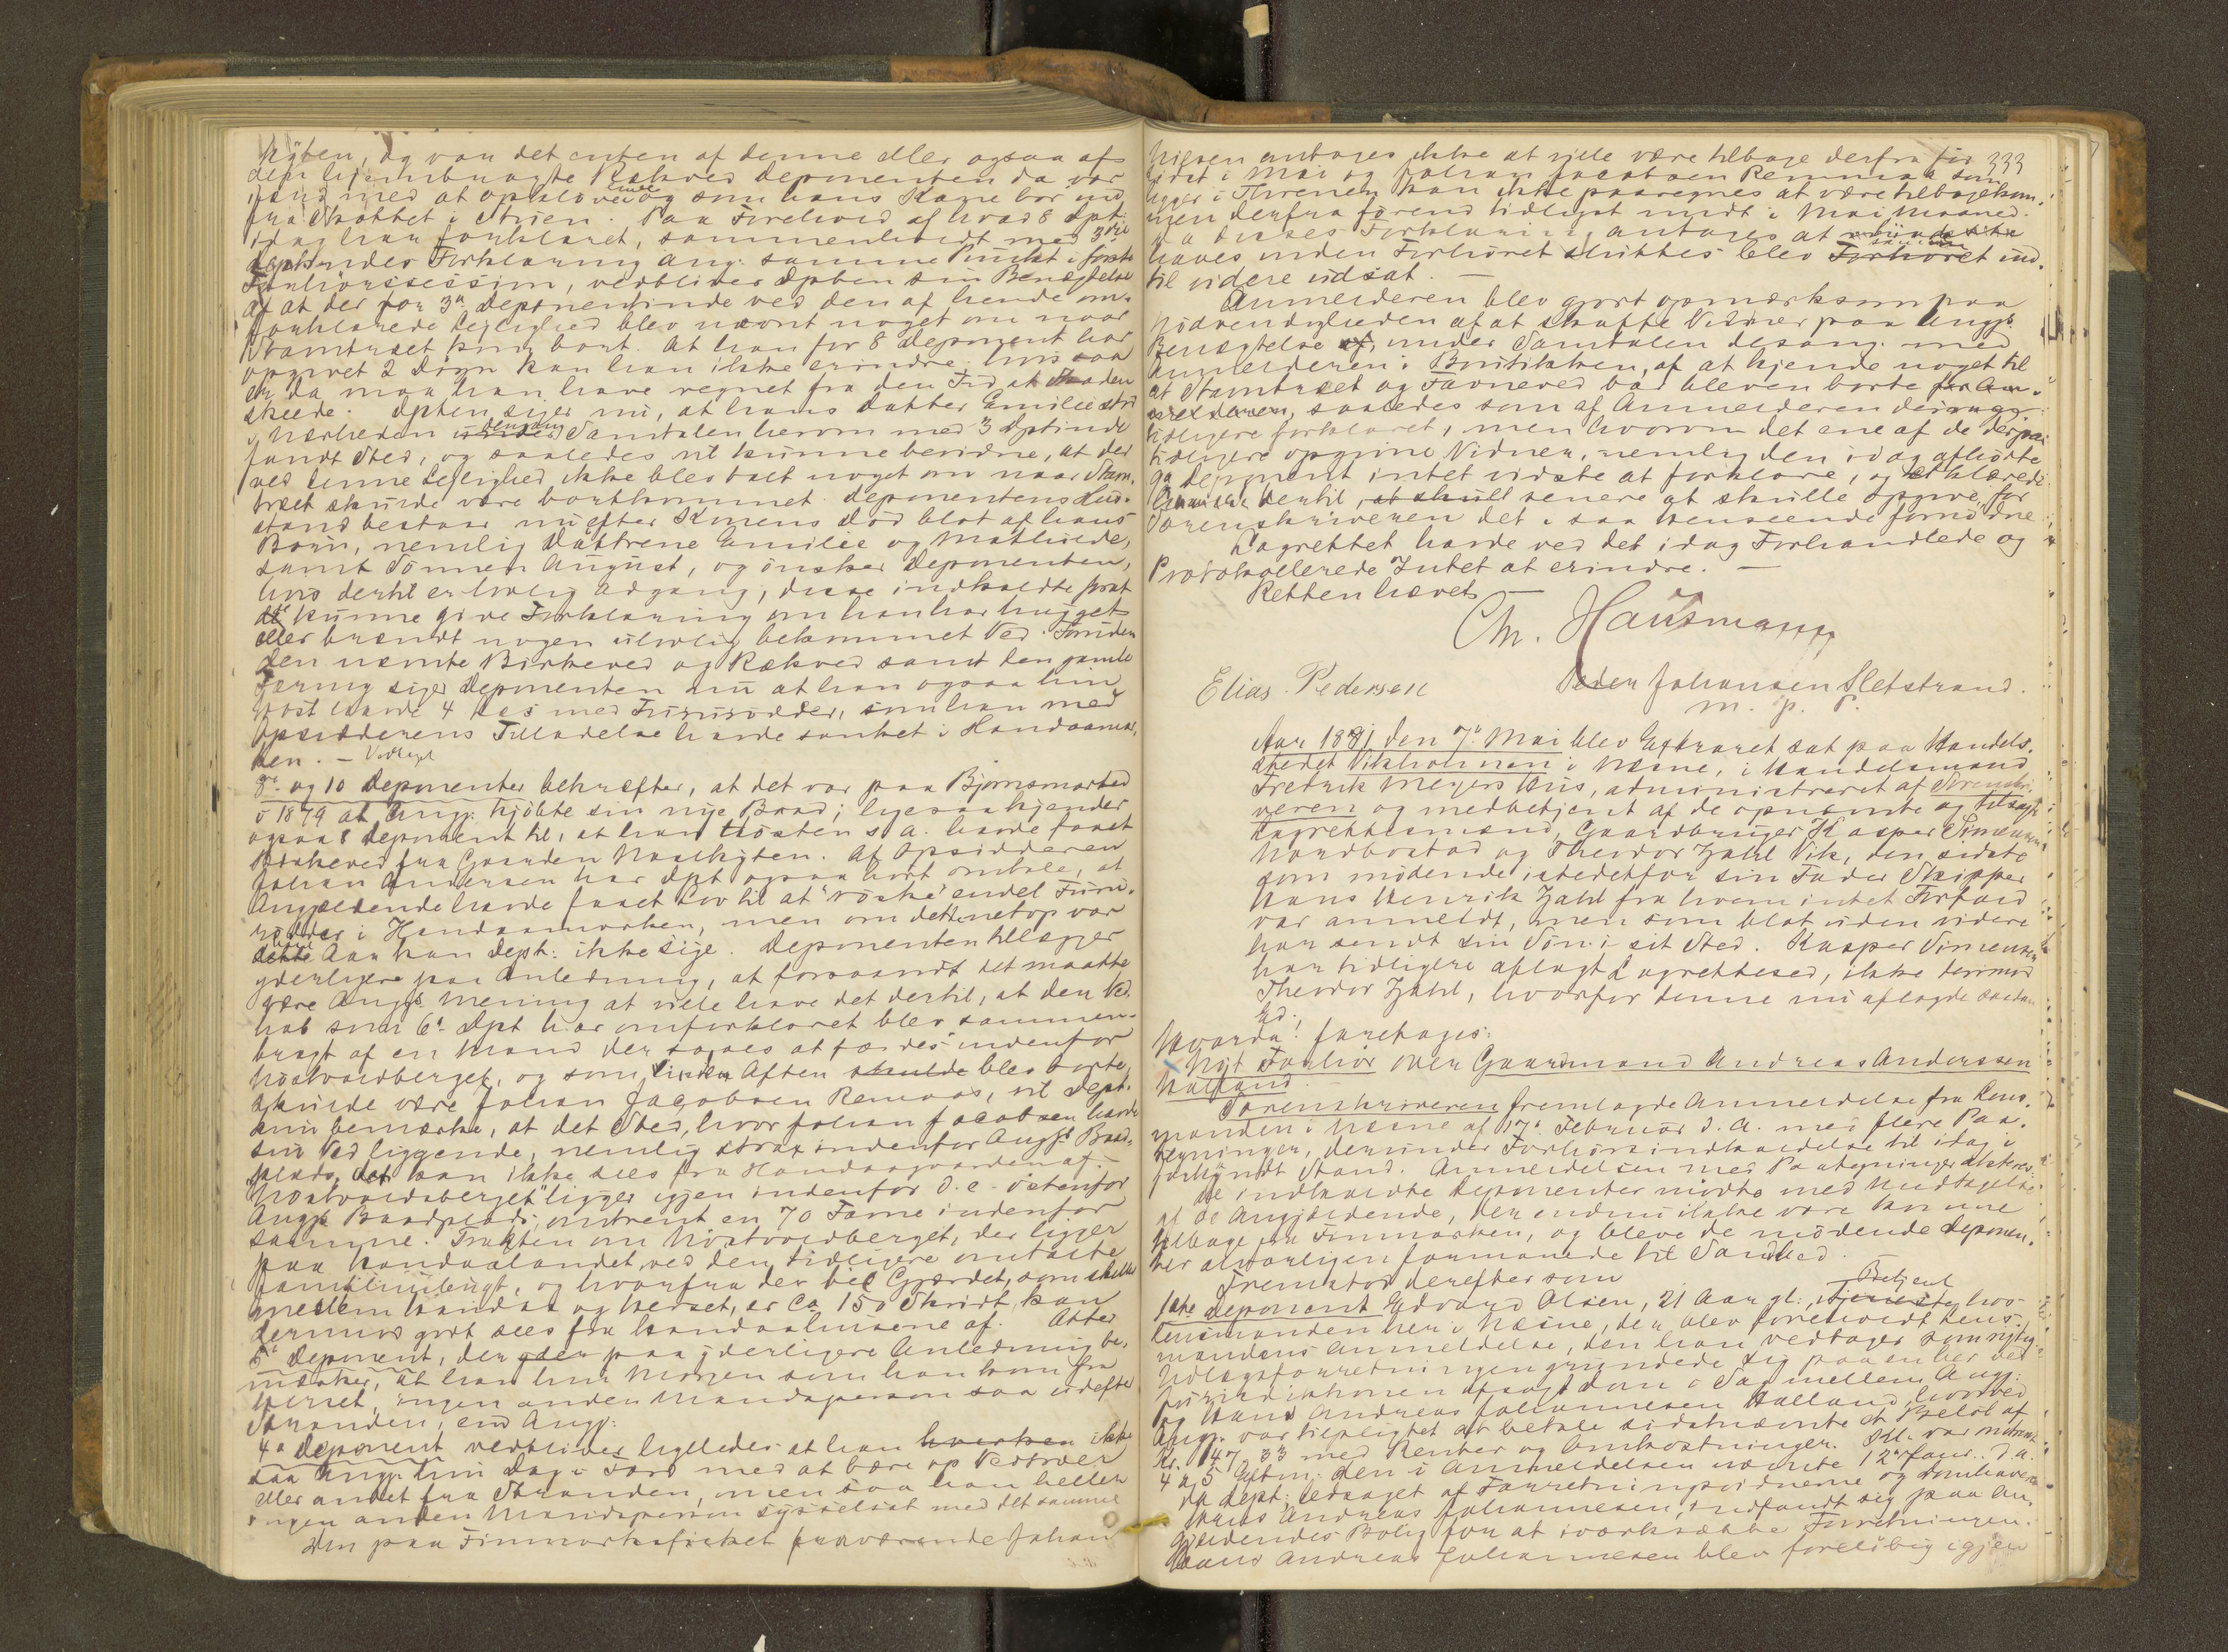 Kyten, og var det enten af denne eller ogsaa af
den hjembragte Rækved Deponenten da var
ifærd med at opkløve inde og som hans Kone bar ind
fra Skottet i Stuen. Paa Forehold af hvad 8 Dpt:
idag har forklaret, sammenholdt med 3die
Deptindes Forklaring ang. samme Punkt i første
Forhørssession, vedbliver Dpten sin Benægtelse
af at der for 3a Deponentinde ved den af hende om-
forklarede Leilighed blev nævnt noget om naar
Stamtræet kom bort. At han for 8 Deponent har
opgivet 2 Døgn kan han ikke erindre. hvis saa
er, da maa han have regnet fra den Tid at Skaden
skede. Dpten siger nu, at hans Datter Emilie stod
i Nærheden dengang Samtalen herom med 3 Dptinde
fandt Sted, og saaledes vil kunne bevidne, at der
ved denne Leilighed ikke blev talt noget om naar Stam-
træet skulde være bortkommet. Deponentens Hus-
stand bestaar nu efter Konens Død blot af hans
Børn, nemlig Døttrene Emilie og Mathilde,
samt Sønnen August, og ønsker Deponenten,
hvis dertil er lovlig Adgang, disse indkaldte for at
de kunne give Forklaring om han har hugget
eller brændt nogen ulovlig bekommet Ved. Foruden
den nævnte Birkeved og Rækved samt den gamle
Færing siger Deponenten nu at han ogsaa hin
Høst havde 4 Læs med Fururødder, som han med
Opsidderens Tilladelse havde sanket i Handaamar-
ken. – Vedtaget
9de og 10 Deponenter bekræfter, at det var paa Bjørnsmarked
i 1879 at Angj. kjøbte sin nye Baad; ligesaa kjender
ogsaa 8 Deponent til, at han Høsten s. A. havde faaet
Birkeved fra Gaarden Naalkyten. Af Opsidderen
Johan Andersen har Dpt ogsaa hørt omtale, at
Angjældende havde faaet Lov til at "røske" endel Furu-
rødder i Handaamarken, men om dette netop var
dette Aar kan Dept: ikke sige. Deponenten tillægger
yderligere paa Anledning, at forsaavidt det maatte
være Angjs Mening at ville have det dertil, at den Ved-
hob som 6te Dpt har omforklaret blev sammen-
bragt af en Mand der saaes at færdes indenfor
Nøstvoldberget, og som hin Aften skulde blev borte,
skulde være Johan Jacobsen Remaas, vil Dept.
kun bemærke, at det Sted, hvor Johan Jacobsen havde
sin Ved liggende, nemlig strax indenfor Angjs Baad-
plads, det kan ikke sees fra Handaagaarden af. –
"Nøstvoldsberget" ligger igjen indenfor d. e. østenfor
Angjs Baadplads, omtrent en 70 Favne indenfor
samme. Trakten om Nøstvoldberget, der ligger
paa Handaalandet ved den tidligere omtalte
Familiebugt, og hvorfra der til Gjærdet, som skiller
mellem Handaa og Herset, er Ca 150 Skridt, kan
derimod godt sees fra Handaahusene af. Atter
5te Deponent, der paa yderligere Anledning be-
mærker, at han hin Morgen som han kom fra
Herset, ingen anden Mandsperson saa indefter
Stranden, end Angj:
4a Deponent vedbliver ligeledes at han hverken ikke
saa Angj. hin Dag i Færd med at bære op Vedtræer
eller andet fra Stranden, men saa han heller
ingen anden Mandsperson sysselsat med det samme.
Den paa Finmarksfisket fraværende Johan
Nilsen antages ikke at ville være tilbage derfra før 333
sidst i Mai og Johan Jacobsen Remmaa som
ligger i Threnen kan ikke paaregnes at være tilbagekom-
men derfra førend tidligst midt i Mai Maaned.
Da disses Forklaring antages at
haves inden Forhøret sluttes blev samme ind-
til videre udsat. –
Anmelderen blev gjort opmærksom paa
Nødvendigheden af at skaffe Vidner paa Angjs
Benægtelse af, under Samtalen desang. med
Anmelderen i Boutikken, af at kjende noget til
at Stamtræet og Favneved var bleven borte for An-
melderen, saaledes som af Anmelderen
tidligere forklaret, men hvorom det ene af de derpaa
tidligere opgivne Vidner, nemlig den idag afhørte
9a Deponent intet vidste at forklare, og erklærede
dertil, at skull senere at skulle opgive for
Sorenskriveren det i saa Henseende fornødne
Lagrettet havde ved det idag Forhandlede og
Protokollerede Intet at erindre. –
Retten hævet
Chr. Hausmann
Elias Pedersen Peder Johansen Sletstrand.
m. p. P.
Aar 1881 den 7de Mai blev Extraret sat paa Handels-
stedet Vikholmen i Næsne, i Handelsmand
Fredrik Meyers Hus, administreret af Sorenskri-
veren og medbetjent af de opnævnte og tilsagte
Lagrettesmænd, Gaardbruger Kasper Simensen
Nordbostad og Theodor Zahl Vik, den sidste
som mødende istedetfor sin Fader Skipper
Hans Henrik Zahl fra hvem intet Forfald
var anmeldt, men som blot uden videre
har sendt sin Søn i sit Sted. Kasper Simensen
har tidligere aflagt Lagretteseed, ikke derimod
Theodor Zahl, hvorfor denne nu aflagde saadan
Ed.
Hvorda! foretages:
Nyt Forhør over Gaardmand Andreas Anderssen
Halland.
Sorenskriveren fremlagde Anmeldelse fra Lens-
manden i Næsne af 17de Februar d. A. med flere Paa-
tegninger, derunder Forhørsindkaldelse til idag i
forkyndt Stand. Anmeldelsen med Paategninger akteres.
De indkaldte Deponenter mødte med Undtagelse
af de Angjældende, der endnu ikke vare komne
tilbage fra Finmarken, og bleve de mødende Deponen-
ter alvorligen formanede til Sandhed. –
Fremstod derefter som
1ste Deponent Edvard Olsen, 21 Aar gl., Betjent hos
Lensmanden her i Næsne, der blev foreholdt Lens-
mandens Anmeldelse, den han vedtager som rigtig.
Udlægsforretningen grundede sig paa en her ved
Jurisdiktionen afsagt Dom i Sag mellem Angj:
og Hans Andreas Johannesen Halland, hvorved
Angj. var tilpligtet at betale sidstnævnte et Beløb af
Kr. 147,33 med Renter og Omkostninger. Kl. var omtrent
4 a 5 Eftm. den i Anmeldelsen nævnte 12te Januar d. A.
da Dept: ledsaget af Forretningsvidnerne og Domhaveren
Hans Andreas Johannesen, indfandt sig paa An-
gjældendes Bolig for at iværksætte Forretningen.
Hans Andreas Johannesen blev foreløbig igjen